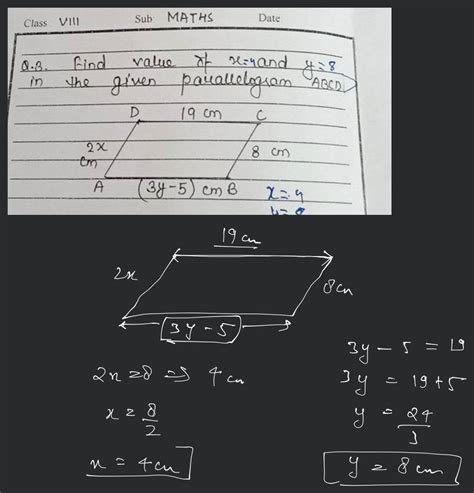 Class VIII Sub MATHS Date
Q.3. Find value of x=4 and y=8
in the given parallelogram ABCD
D 19 cm C
2x
cm
8 cm
A (3y-5) cm B
x=4
y=8
19 cm
2x
8cm
3y-5
3y-5=19
2x=8 => 4cm
3y=19+5
x=8/2
y=24/3
x=4cm
y=8cm